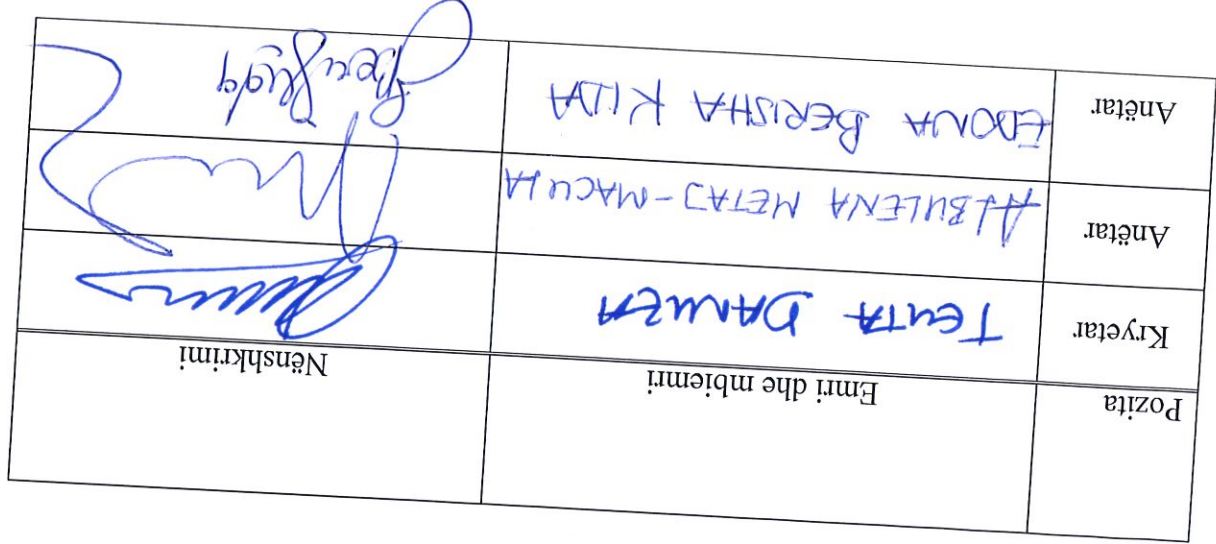 Pozita Emri dhe mbiemri Nënshkrimi
Kryetar TEUTA DANUZA
Anëtar ALBULENA METAJ-MACULA
Anëtar EDONA BERISHA KIDA